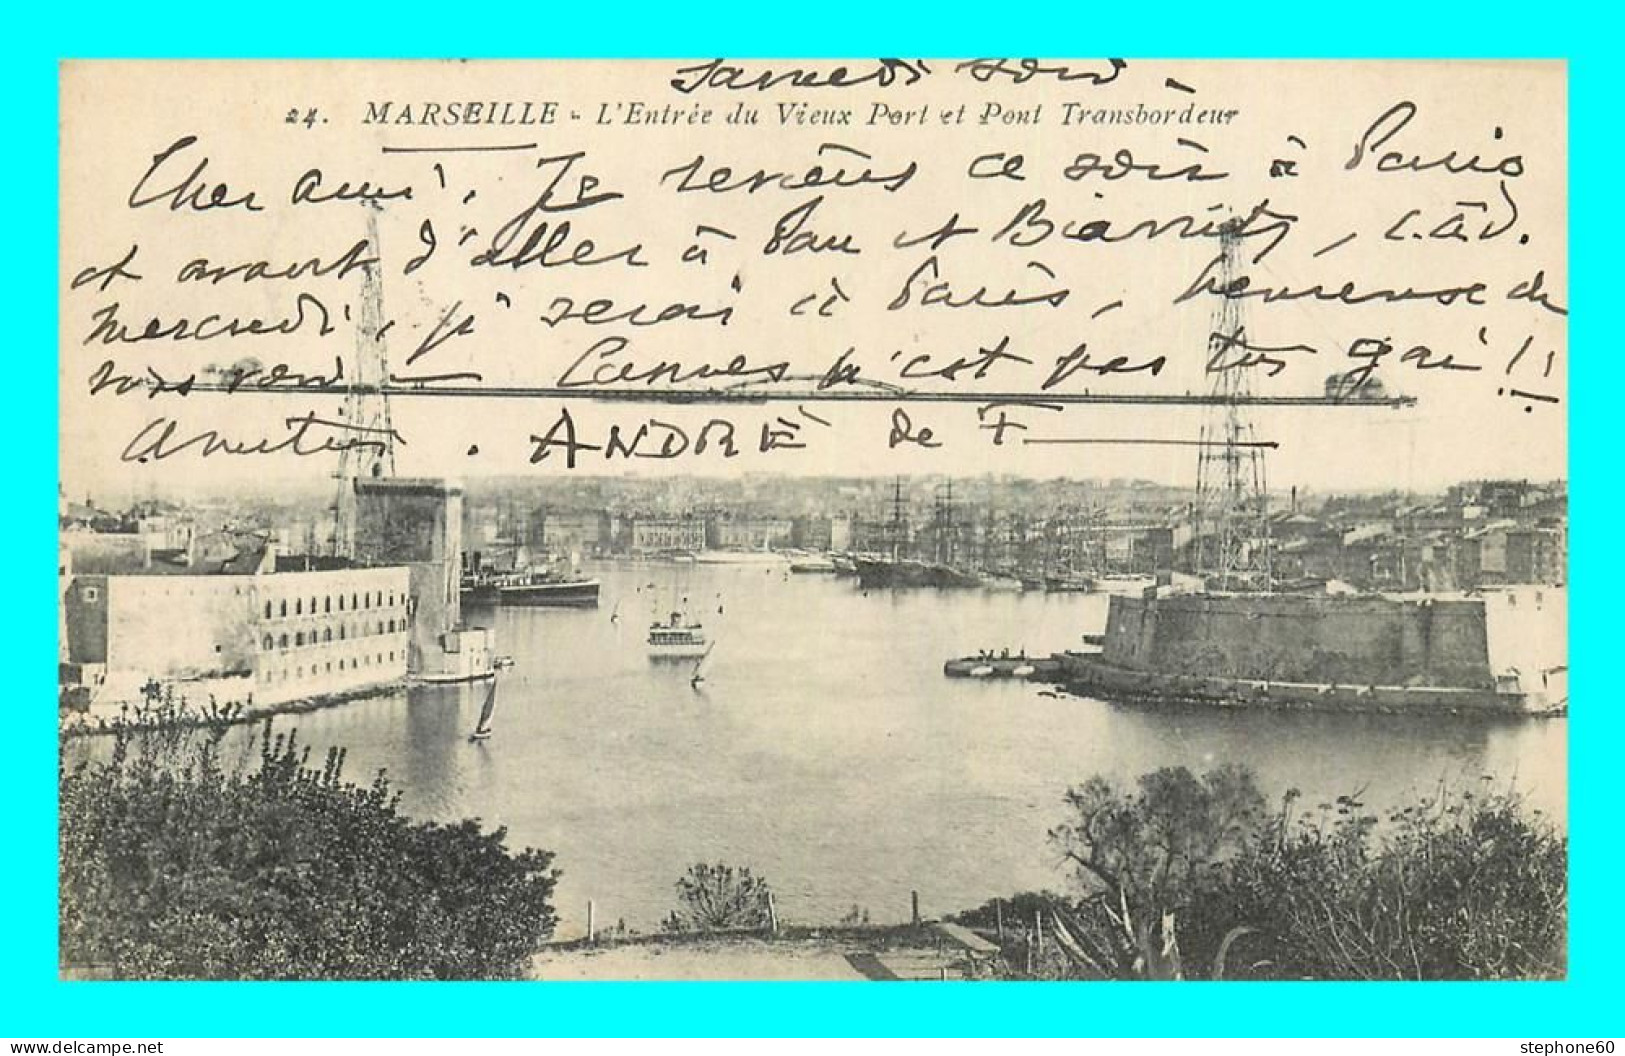 Samedi soir -
24. MARSEILLE - L'Entrée du Vieux Port et Pont Transbordeur
Cher ami, Je reviens ce soir à Paris
et avant d'aller à Pau et Biarritz, c.à.d.
mercredi, j' serai à Paris, heureuse de
vous voir - Cannes n'est pas très gai!!
Amitiés. ANDRÉ de F
www.delcampe.net
stephone60